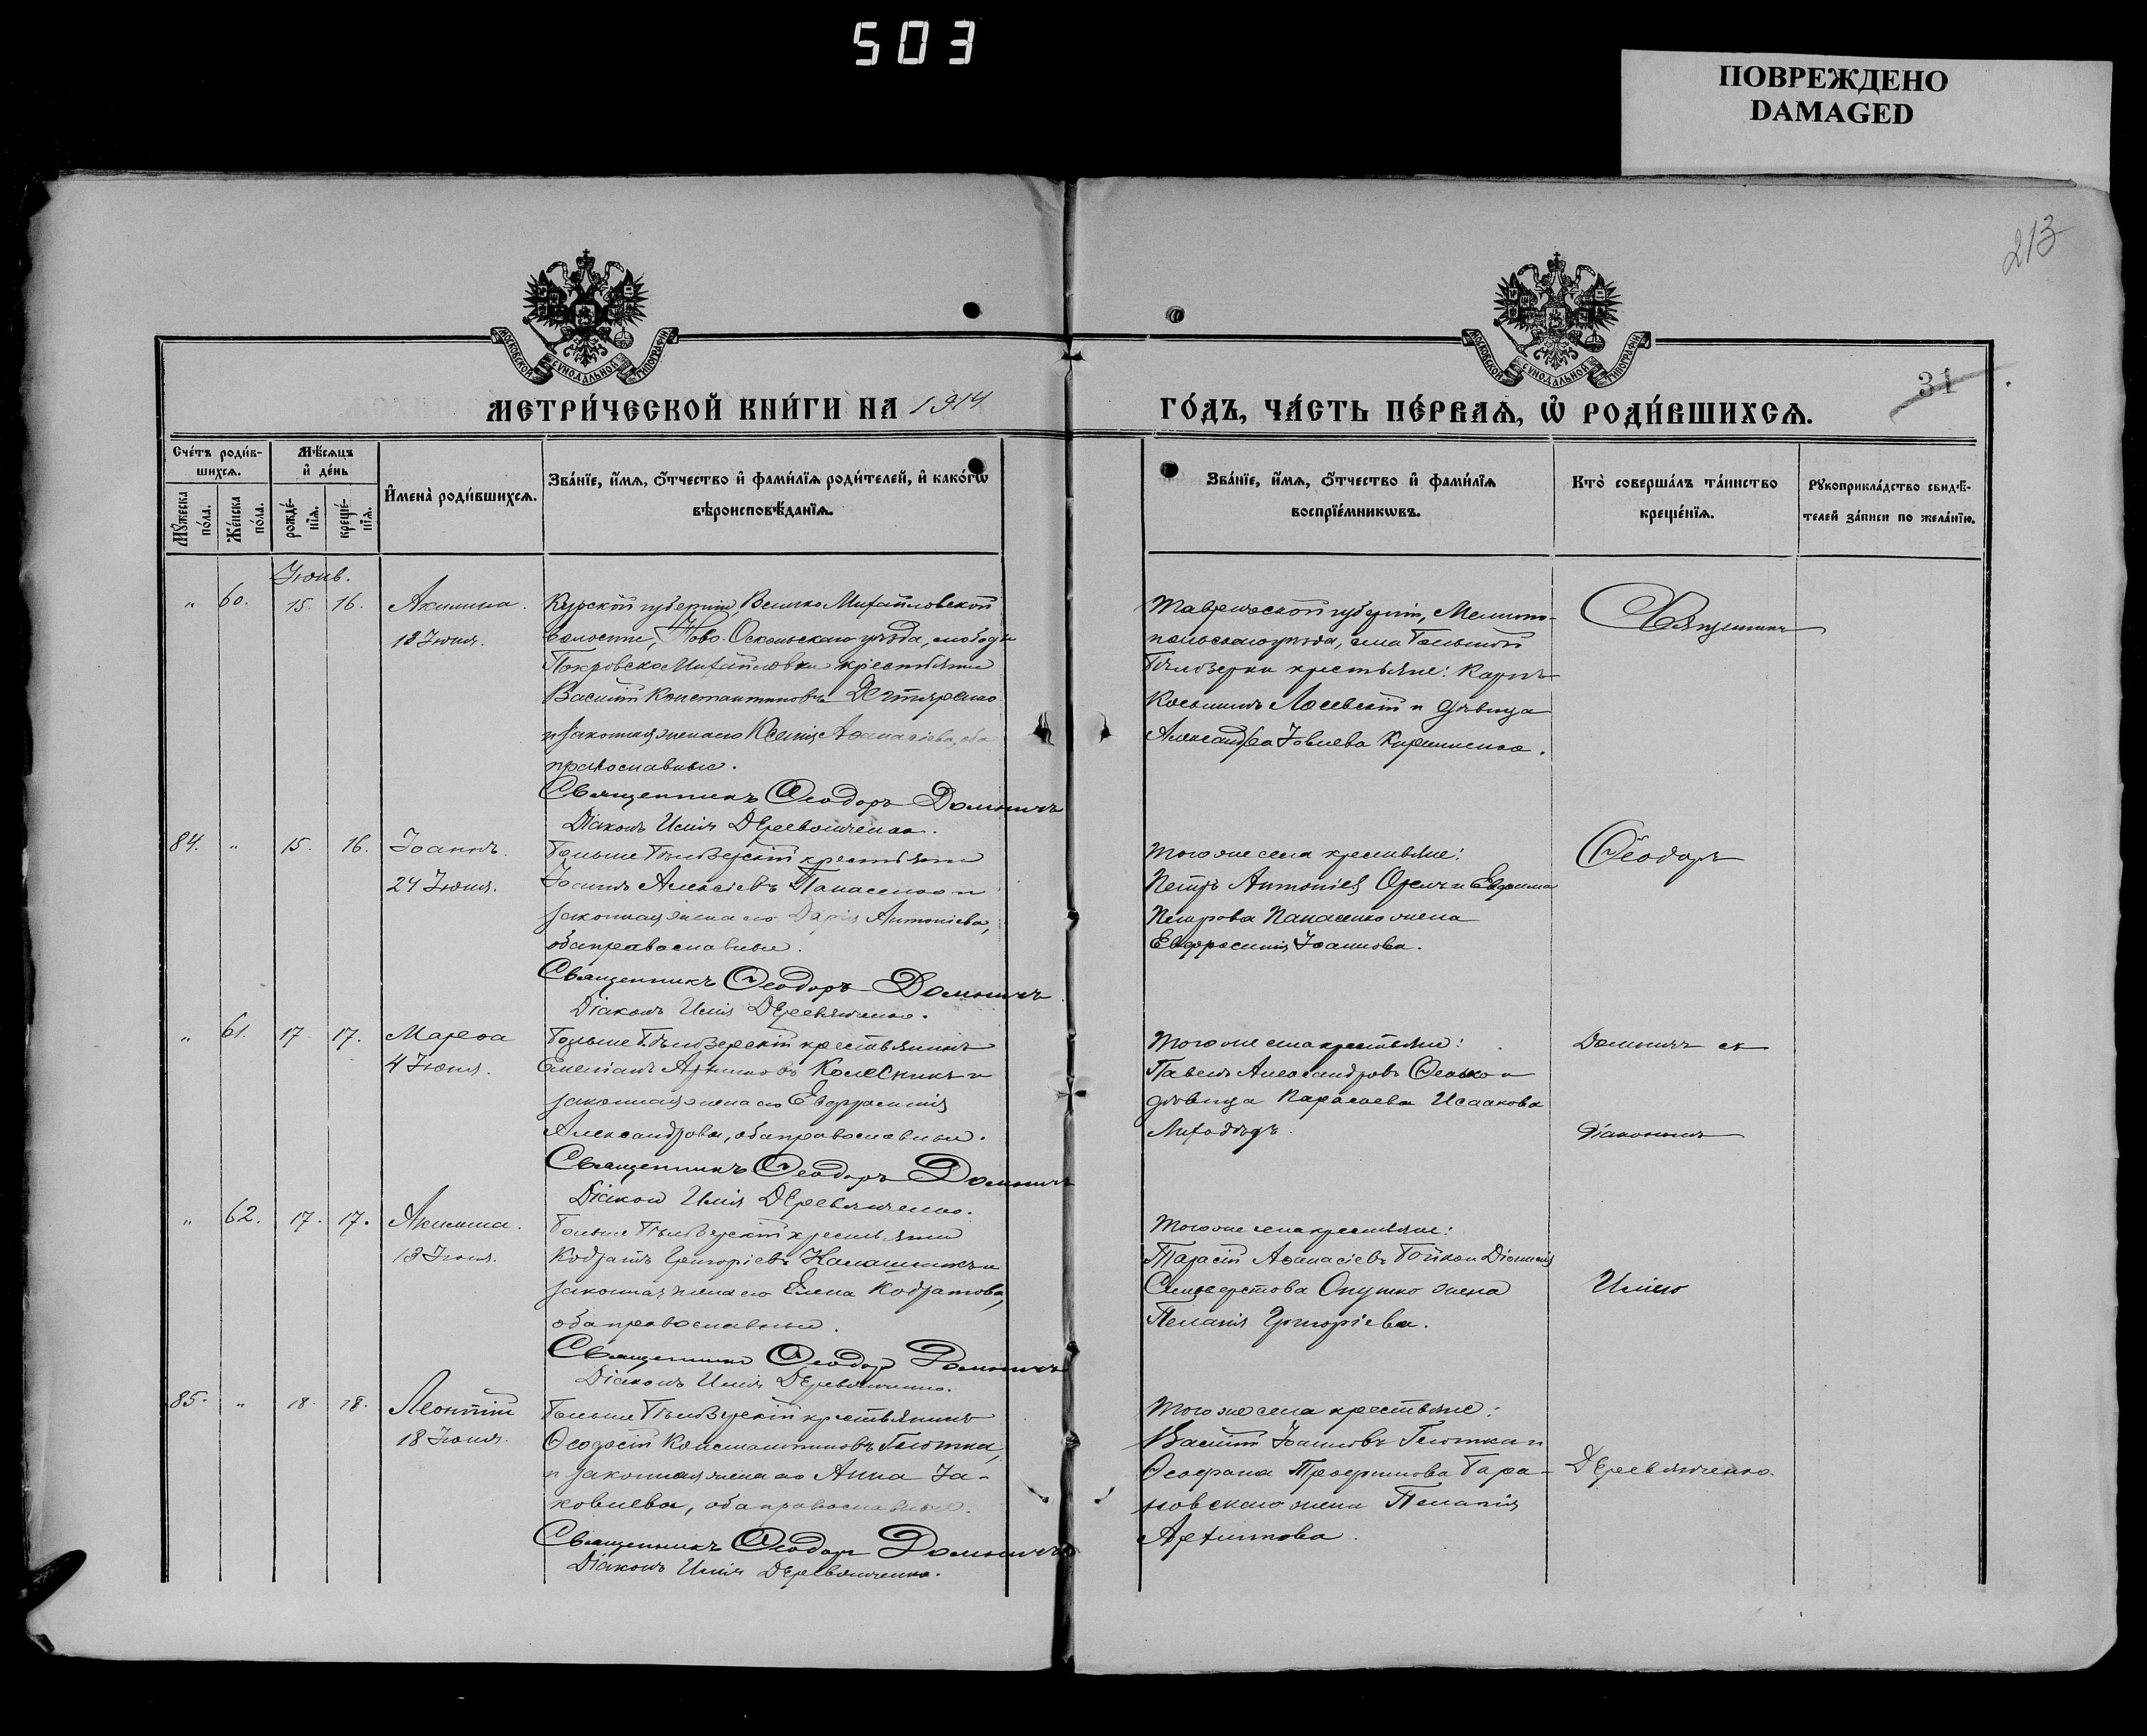 503
ПОВРЕЖДЕНО
DAMAGED
213
МОСКОВСКОЙ СѴНОДАЛЬНОЙ ТИПОГРАФІИ
МОСКОВСКОЙ СѴНОДАЛЬНОЙ ТИПОГРАФІИ
31
МЕТРИ́ЧЕСКОЙ КНИ́ГИ НА 1914
ГО́ДЪ, ЧА́СТЬ ПЕ́РВАѦ, Ѡ҆ РОДИ́ВШИХСѦ.
Сче́тъ роди́в-
шихсѧ.
Мꙋ́жеска по́ла.
Же́нска по́ла.
Мѣ́сѧцъ и҆ де́нь
рожде́-
нїѧ.
креще́-
нїѧ.
И҆мена̀ роди́вшихсѧ.
Зва́нїе, и҆́мѧ, ѻ҆́тчество и҆ фами́лїѧ роди́телей, и҆ како́гѡ
вѣроисповѣ́данїѧ.
Зва́нїе, и҆́мѧ, ѻ҆́тчество и҆ фами́лїѧ
воспрїе́мникѡвъ.
Кто̀ соверша́лъ та́инство
креще́нїѧ.
Рꙋкоприкла́дство свидѣ́-
телей за́писи по жела́нїю.
Іюнь.
" 60. 15. 16. Акилина.
13 Іюня.
Курской губерніи, Велико Михайловской
волости, Ново-Оскольскаго уѣзда, слободы
Покровско Михайловки крестьянинъ
Василій Константиновъ Дегтяренко
и законная жена его Ксенія Аѳанасіева, оба
православные.
Священникъ Ѳеодоръ Домничъ
Діаконъ Илія Деревянченко.
Таврической губерніи, Мелито-
польскаго уѣзда, села Большой
Бѣлозерки крестьяне: Карпъ
Косьминъ Лосевскій и дѣвица
Александра Іовлева Кириленко.
Священникъ
84. " 15. 16. Іоаннъ.
24 Іюня.
Больше Бѣлозерскій крестьянинъ
Іосифъ Алексіевъ Панасенко и
законная жена его Дарія Антоніева,
оба православные.
Священникъ Ѳеодоръ Домничъ
Діаконъ Илія Деревянченко.
Того же села крестьяне:
Петръ Антоніев и
Петрова Панасенко жена
Евфросинія Іоаннова.
Ѳеодоръ
" 61. 17. 17. Марѳа
4 Іюля.
Больше Бѣлозерскій крестьянинъ
Емеліанъ Колесникъ и
законная жена его Евфросинія
Александрова, оба православные.
Священникъ Ѳеодоръ Домничъ
Діаконъ Илія Деревянченко.
Того же села крестьяне:
Павелъ Александровъ и
дѣвица Параскева Исаакова
Лиходѣдъ.
Домничъ съ
Діакономъ
" 62. 17. 17. Акилина.
13 Іюня.
Больше Бѣлозерскій крестьянинъ
Кодратъ Григоріевъ Калашникъ и
законная жена его Елена Кодратова,
оба православные.
Священникъ Ѳеодоръ Домничъ
Діаконъ Илія Деревянченко.
Того же села крестьяне:
Тарасій Аѳанасіевъ Бойко и Діонисія
Сильверстова Опушко жена
Пелагія Григоріева.
Иліею
85. " 18. 18. Леонтій
18 Іюня.
Больше Бѣлозерскій крестьянинъ
Ѳеодосій Константиновъ
и законная жена его Анна Іа-
ковлева, оба православные.
Священникъ Ѳеодоръ Домничъ
Діаконъ Илія Деревянченко.
Того же села крестьяне:
Василій Іоанновъ и
Ѳеофана Трофимова Бара-
новскаго жена Пелагія
Архипова.
Деревянченко.